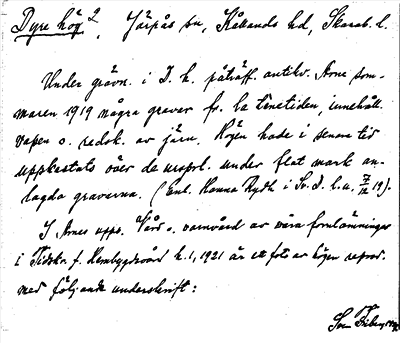 Dyre hög 2, Järpås sn, Kållands hd, Skarab. l.
Under grävn. i D. h. påträff. antikv. Arne som-
maren 1919 några graver fr. la Tènetiden, innehåll.
vapen o. redsk. av järn. Högen hade i senare tid
uppkastats över de urspr. under flat mark an-
lagda graverna. (Enl. Hanna Rydh i Sv. D. l. u. 19).
I Arnes upps. Vård o. vanvård av våra fornlämningar
i Tidskr. f. Hembygdsvård h. 1, 1921 är ett foto av högen reprod.
med följande underskrift: